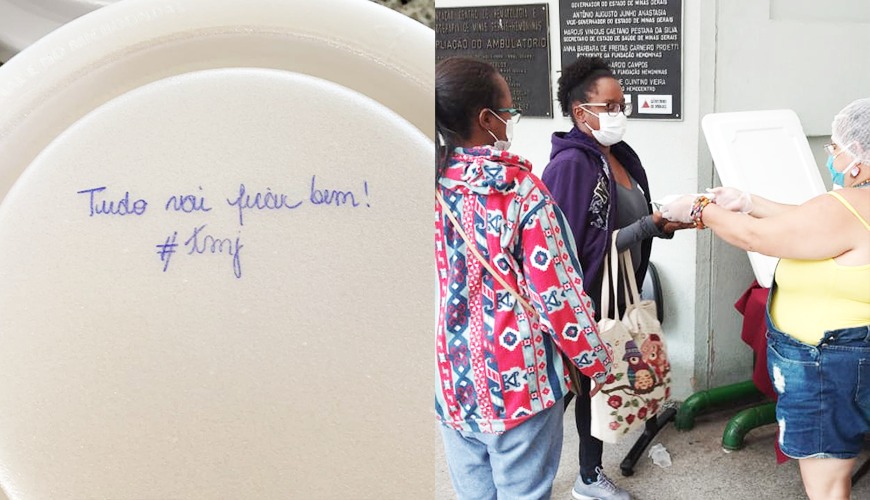 Tudo vai ficar bem!
#tmj
AMPLIAÇÃO DO AMBULATÓRIO
GOVERNADOR DO ESTADO DE MINAS GERAIS
ANTÔNIO AUGUSTO JUNHO ANASTASIA
VICE-GOVERNADOR DO ESTADO DE MINAS GERAIS
MARCUS VINÍCIUS CAETANO PESTANA DA SILVA
SECRETÁRIO DE ESTADO DE SAÚDE DE MINAS GERAIS
ANNA BÁRBARA DE FREITAS CARNEIRO PROIETTI
PRESIDENTE DA FUNDAÇÃO HEMOMINAS
CAMPOS
FUNDAÇÃO HEMOMINAS
QUINTINO VIEIRA
HEMOCENTRO